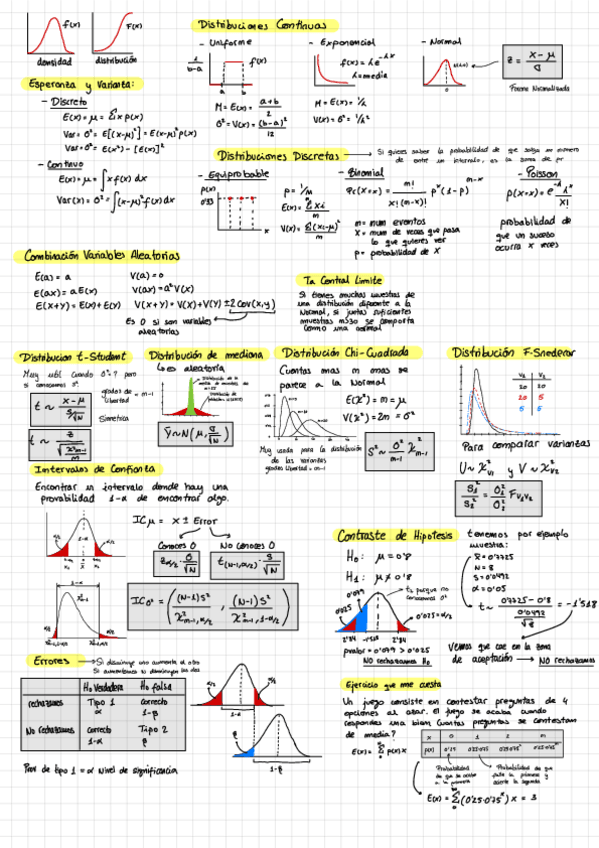 f(x)
F(x)
densidad
distribución
Distribuciones Continuas
- Uniforme
1/(b-a)
f(x)
a b
M = E(x) = (a+b)/2
σ² = V(x) = (b-a)²/12
- Exponencial
f(x) = λe^(-λx)
M = E(x) = 1/λ
V(x) = σ² = 1/λ²
- Normal
z = (x-μ)/σ
Forma Normalizada
Esperanza y Varianza:
- Discreto
E(x) = μ = Σ x p(x)
Var = σ² = E[(x-μ)²] = E(x-μ)² p(x)
Var = σ² = E(x²) - [E(x)]²
- Continuo
E(x) = μ = ∫ x f(x) dx
Var(x) = σ² = ∫(x-μ)² f(x) dx
Distribuciones Discretas
Si quieres saber la probabilidad de que salga un número
de entre un intervalo, es la suma de pr
- Equiprobable
p(x)
0'33
x
p = 1/m
E(x) = Σxi/m
V(x) = Σ(xi-μ)²/m
- Binomial
Pr(X=x) = m!/(x!(m-x)!) p^x (1-p)^(m-x)
m = num eventos
X = num de veces que pasa
lo que quieres ver
p = probabilidad de X
- Poisson
P(X=x) = e^(-λ) λ^x / x!
probabilidad de
que un suceso
ocurra x veces
Combinación Variables Aleatorias
E(a) = a V(a) = 0
E(ax) = aE(x) V(ax) = a²V(x)
E(x+y) = E(x) + E(y) V(x+y) = V(x) + V(y) ± 2cov(x,y)
Es 0 si son variables
aleatorias
Ta Central Limite
Si tienes muchas muestras de
una distribución diferente a la
Normal, si juntas suficientes
muestras m≥30 se comporta
como una normal
Distribucion t-Student
Muy util cuando σ²=? pero
si conocemos S²
t ~ (x-μ)/(S/√N)
grados de
libertad = m-1
Simetrica
t ~ z/√(χ²m-1/m)
Distribución de mediana
Lo es aleatoria
ȳ ~ N(μ, σ/√N)
Distribución Chi-Cuadrada
Cuantas mas m mas se
parece a la Normal
E(χ²) = m = μ
V(χ²) = 2m = σ²
Muy usada para la distribución
de las varianzas
grados libertad = m-1
S² ~ σ²/(m-1) χ²m-1
Distribución F-Snedecor
V₁ V₂
20 20
20 5
5 5
Para comparar varianzas
U ~ χ²v1 y V ~ χ²v2
S₁²/S₂² = σ₁²/σ₂² Fv1v2
Intervalos de Confianza
Encontrar un intervalo donde hay una
probabilidad 1-α de encontrar algo.
α/2
1-α
α/2
1-α
IC μ = x ± Error
Conoces σ
No conoces σ
zα/2 · σ/√N
t(N-1,α/2) · S/√N
ICσ² = ((N-1)S²/χ²m-1,α/2 , (N-1)S²/χ²m-1,1-α/2)
Contraste de Hipotesis
H₀: μ = 0'8
H₁: μ ≠ 0'8
0'079
0'025
0'025 = α/2
pvalor = 0'079 > 0'025
NO rechazamos H₀
tenemos por ejemplo
muestra:
x̄ = 0'7725
N = 8
S = 0'0492
α = 0'05
t ~ (0'7725 - 0'8)/(0'0492/√8) = -1'518
Vemos que cae en la zona
de aceptación → NO rechazamos
Errores
Si disminuye uno aumenta el otro
H₀ Verdadera H₀ falsa
rechazamos Tipo 1 α correcto 1-β
No rechazamos correcto 1-α Tipo 2 β
Prob de tipo 1 = α Nivel de significancia
α/2
α/2
1-α
β
1-β
Ejercicio que me cuesta
Un juego consiste en contestar preguntas de 4
opciones al azar. El juego se acaba cuando
respondes una bien. Cuantas preguntas se contestan
de media?
E(x) = Σ p(x)x
x 0 1 2 m
p(x) 0'25 0'25·0'75 0'25·0'75² 0'25·0'75^m
Probabilidad
de que se acabe
a la primera
Probabilidad de que
falle la primera y
acierte la segunda
E(x) = Σ(0'25·0'75^x) x = 3